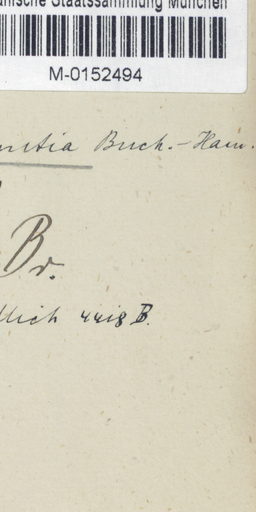 anische Staatssammlung München
M-0152494
Buch.-Ham.
Br.
4418 B.